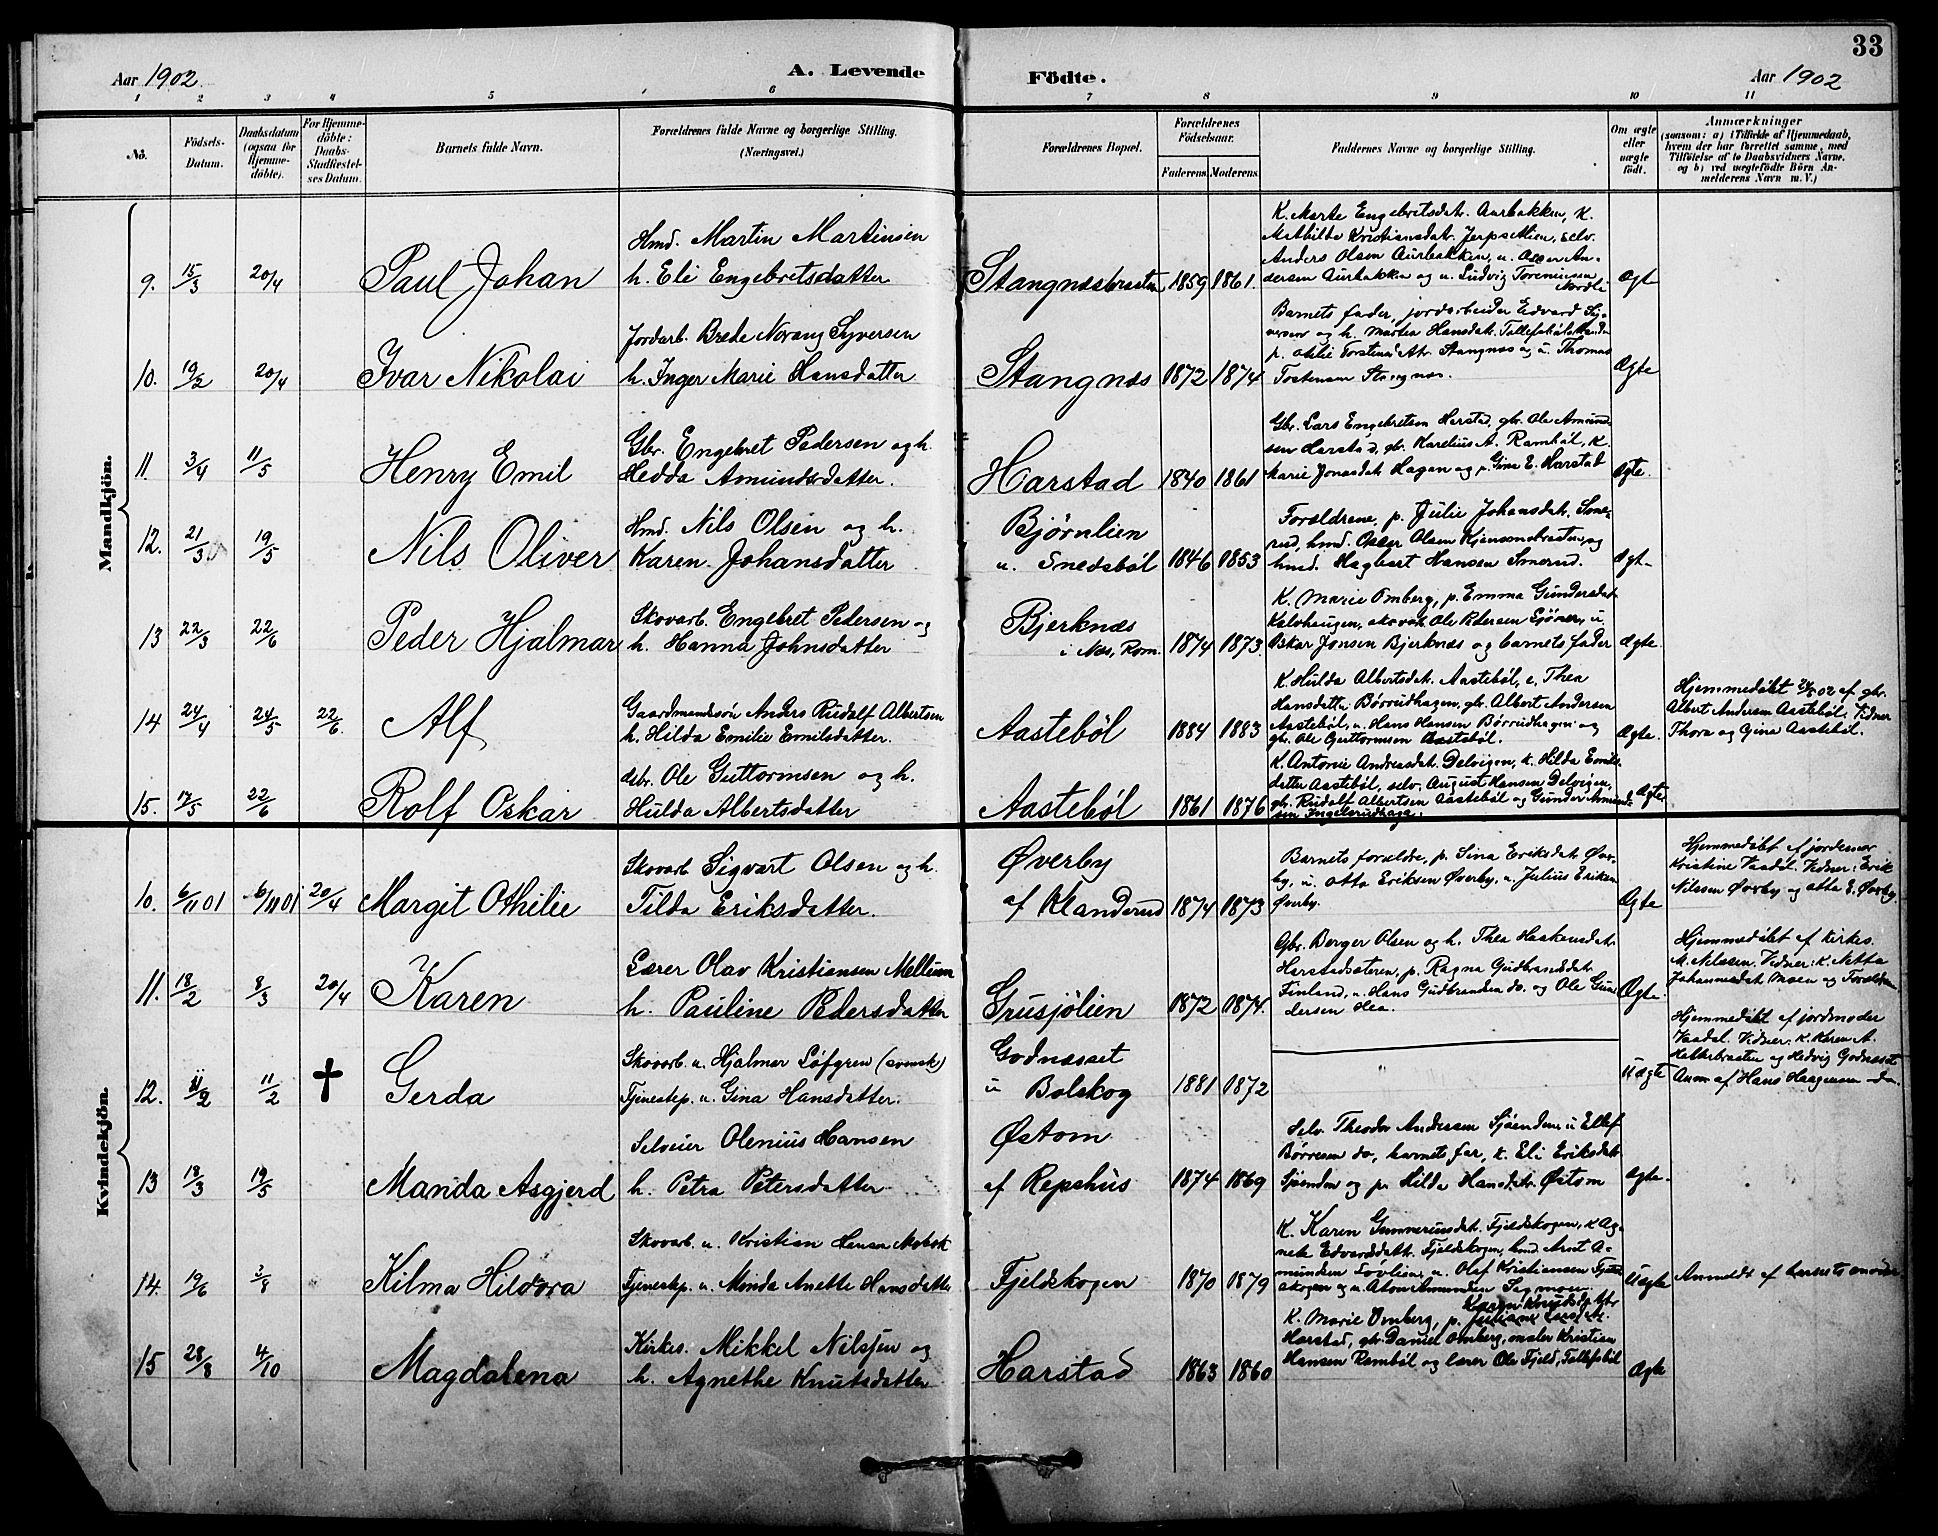 33
Aar 1902.
A. Levende Födte.
Aar 1902
1 2 3 4 5 6 7 8 9 10 11
No.
Födsels-Datum.
Daabsdatum (ogsaa for Hjemme-döbte).
For Hjemme-döbte: Daabs-Stadfæstel-ses Datum.
Barnets fulde Navn.
Forældrenes fulde Navne og borgerlige Stilling. (Næringsvei.)
Forældrenes Bopæl.
Forældrenes Födselsaar.
Faderens. Moderens.
Faddernes Navne og borgerlige Stilling.
Om ægte eller uægte födt.
Anmærkninger
(saasom: a) i Tilfælde af Hjemmedaab,
hvem der har forrettet samme, med
Tilföielse af to Daabsvidners Navne,
og b) ved uægtefödte Börn An-
melderens Navn m. V.)
Mandkjön.
9. 15/3 20/4 Paul Johan
Hmd. Martin Martinsen
h. Eli Engebretsdatter
Stangnæsbraaten 1859 1861
K. Marte Engebretsdat. Aurbakken, K.
Mathilde Kristiansdat. Jerpsettien, selv.
Anders Olsen Aurbakken, u. Olser An-
dersen Aurbakken og u. Ludvig Toreninsen
Ægt
10. 19/2 20/4 Ivar Nikolai
Jordarb. Brede Norang Syversen
h. Inger Marie Hansdatter
Stangnæs 1872 1874
Barnets fader, jordarbeider Edvard Sy-
versen og h. Martea Hansdat.
p. Torstensdtr. Stangnæs og u. Thomas
Torstensen Stangnæs.
Ægte
11. 3/4 11/5 Henry Emil
Gbr. Engebret Pedersen og h.
Hedda Amundsdatter.
Harstad 1840 1861
Gbr. Lars Engebretsen Harstad, gbr. Ole Amund-
sen Harstad, gbr. Karelius A. Rambøl, K.
Marie Jonasdat. Hagen og p. Gina E. Harstad
Ægte.
12. 21/3 19/5 Nils Oliver
Hmd. Nils Olsen og h.
Karen Johansdatter
Bjørnlien
u. Snedsbøl 1846 1853
Forældrene, p. Julie Johansdat. Sme-
rud, hmd. Olsen og
hmd. Hagbart Hansen Smerud.
Ægt.
13 22/3 22/6 Peder Hjalmar
Skovarb. Engebret Pedersen og
h. Hanna Johnsdatter
Bjerknæs
i Næs, Rom. 1874 1873.
K. Marie Omberg, p. Emma Gundersdat.
Kalvhaugen, skovarb. Ole Pedersen u.
Oskar Jonsen Bjerknæs og barnets fader
Ægte.
14 24/4 24/5 22/6. Alf
Gaardmandssøn Anders Rudolf Albertsen
h. Hilda Emilie Emilsdatter.
Aastebøl 1884 1883
K. Hulda Albertsdat. Aastebøl, e. Thea
Hansdatter Børrudhagen, gbr. Albert Andersen
Aastebøl, u. Hans Hansen Børrudhagen og
gbr. Ole Guttormsen Aastebøl.
Ægte.
Hjemmedøbt 24/5 02 af gbr.
Albert Andersen Aastebøl. Vidner
Thora og Gina Aastebøl.
15. 17/5 22/6 Rolf Oskar
Gbr. Ole Guttormsen og h.
Hulda Albertsdatter
Aastebøl 1861 1876
K. Antonie Andreasdat. Delvigen, K. Hilda Emils-
datter Aastebøl, selv. August Hansen Delvigen,
gbr. Rudolf Albertsen Aastebøl og Gunder Amund-
sen Ingelsrudhaga.
Ægte
Kvindekjön.
10. 6/11 01 6/11 01 20/4 Margit Othilie
Skovarb. Sigvart Olsen og h.
Tilda Eriksdatter.
Øverby
af Klanderud 1874 1873
Barnets forældre, p. Sina Eriksdat. Øver-
by, u. Otto Eriksen Øverby, u. Julius Eriksen
Øverby.
Ægte
Hjemmedøbt af jordemor
Kristine Vaadel. Vidner: Erik
Nilssen Øvrby og Otto E. Øvrby
11. 18/2 8/3 20/4 Karen
Lærer Olav Kristiansen Mellum
h. Pauline Pedersdatter
Grusjølien 1872 1874.
Gbr. Berger Olsen og h. Thea Haakensdat.
Harstadsæteren, p. Ragna Gudbrandsdat.
Finland, u. Hans Gudbrandsen do. og Ole Gun-
dersen Lea.
Ægte.
Hjemmedøbt af kirkes.
M. Nilssen. Vidner: K. Netta
Johannesdat. Moen og Forældrene
12. 11/2 11/2 ✝ Gerda
Skovarb. u. Hjalmar Löfgren (svensk)
Tjenestep. u. Gina Hansdatter.
Godnæsset
u Bolskog 1881 1872
Uægte
Hjemmedøbt af jordmoder
Vaadel. Vidner: K. Karen A.
og Hedvig Godnæset
Anm. af Hans Haagensen do.
13 18/3 19/5 Manda Asgjerd
Selveier Olenius Hansen
h. Petra Petersdatter
Østom
af Repshus 1874 1869
Selv. Theodor Andersen Sjøenden u Ellef
Børresen do, barnets far, K. Eli Eriksdat.
Sjøenden og p. Hilda Hansdtr. Østom
Ægte.
14. 19/6 3/8 Kilma Hildora
Skovarb. u. Kristian Hansen
Tjenestep. u. Minda Anette Hansdatter
Fjeldskogen 1870 1879
K. Karen Gunneriusdat. Fjeldskogen, K Ag-
nete Edvardsdatt. Fjeldskogen, hmd. Arnt A-
mundsen Løvlien, u. Olaf Kristiansen Fjeld-
skogen og u. Anton Amundsen Sagmoen.
Uægte
Anmeldt af barnets moder
15 28/8 4/10 Magdalena
Kirkes. Mikkel Nilssen og
h. Agnethe Knutsdatter
Harstad 1863 1860
K. Marie Omberg, p. Karen Knudsdatter
Harstad, gbr. Daniel Omberg, maler Kristian
Hansen Rambøl og lærer Ole Fjeld, Tallefsbøl
Ægte